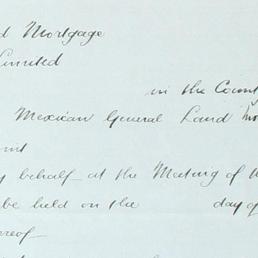 d Mortgage
Limited
in the Coun
Mexican General Land Mo
y behalf at the Meeting of
be held on the day of
ereof